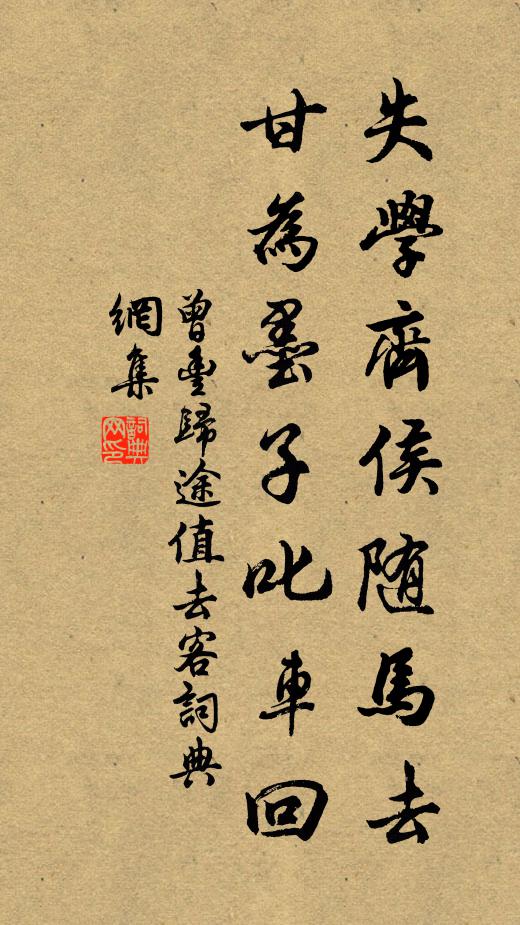 失學齊侯随馬去
甘為墨子叱車回
曾豐歸途值去客詞典
網集
詞典
网印